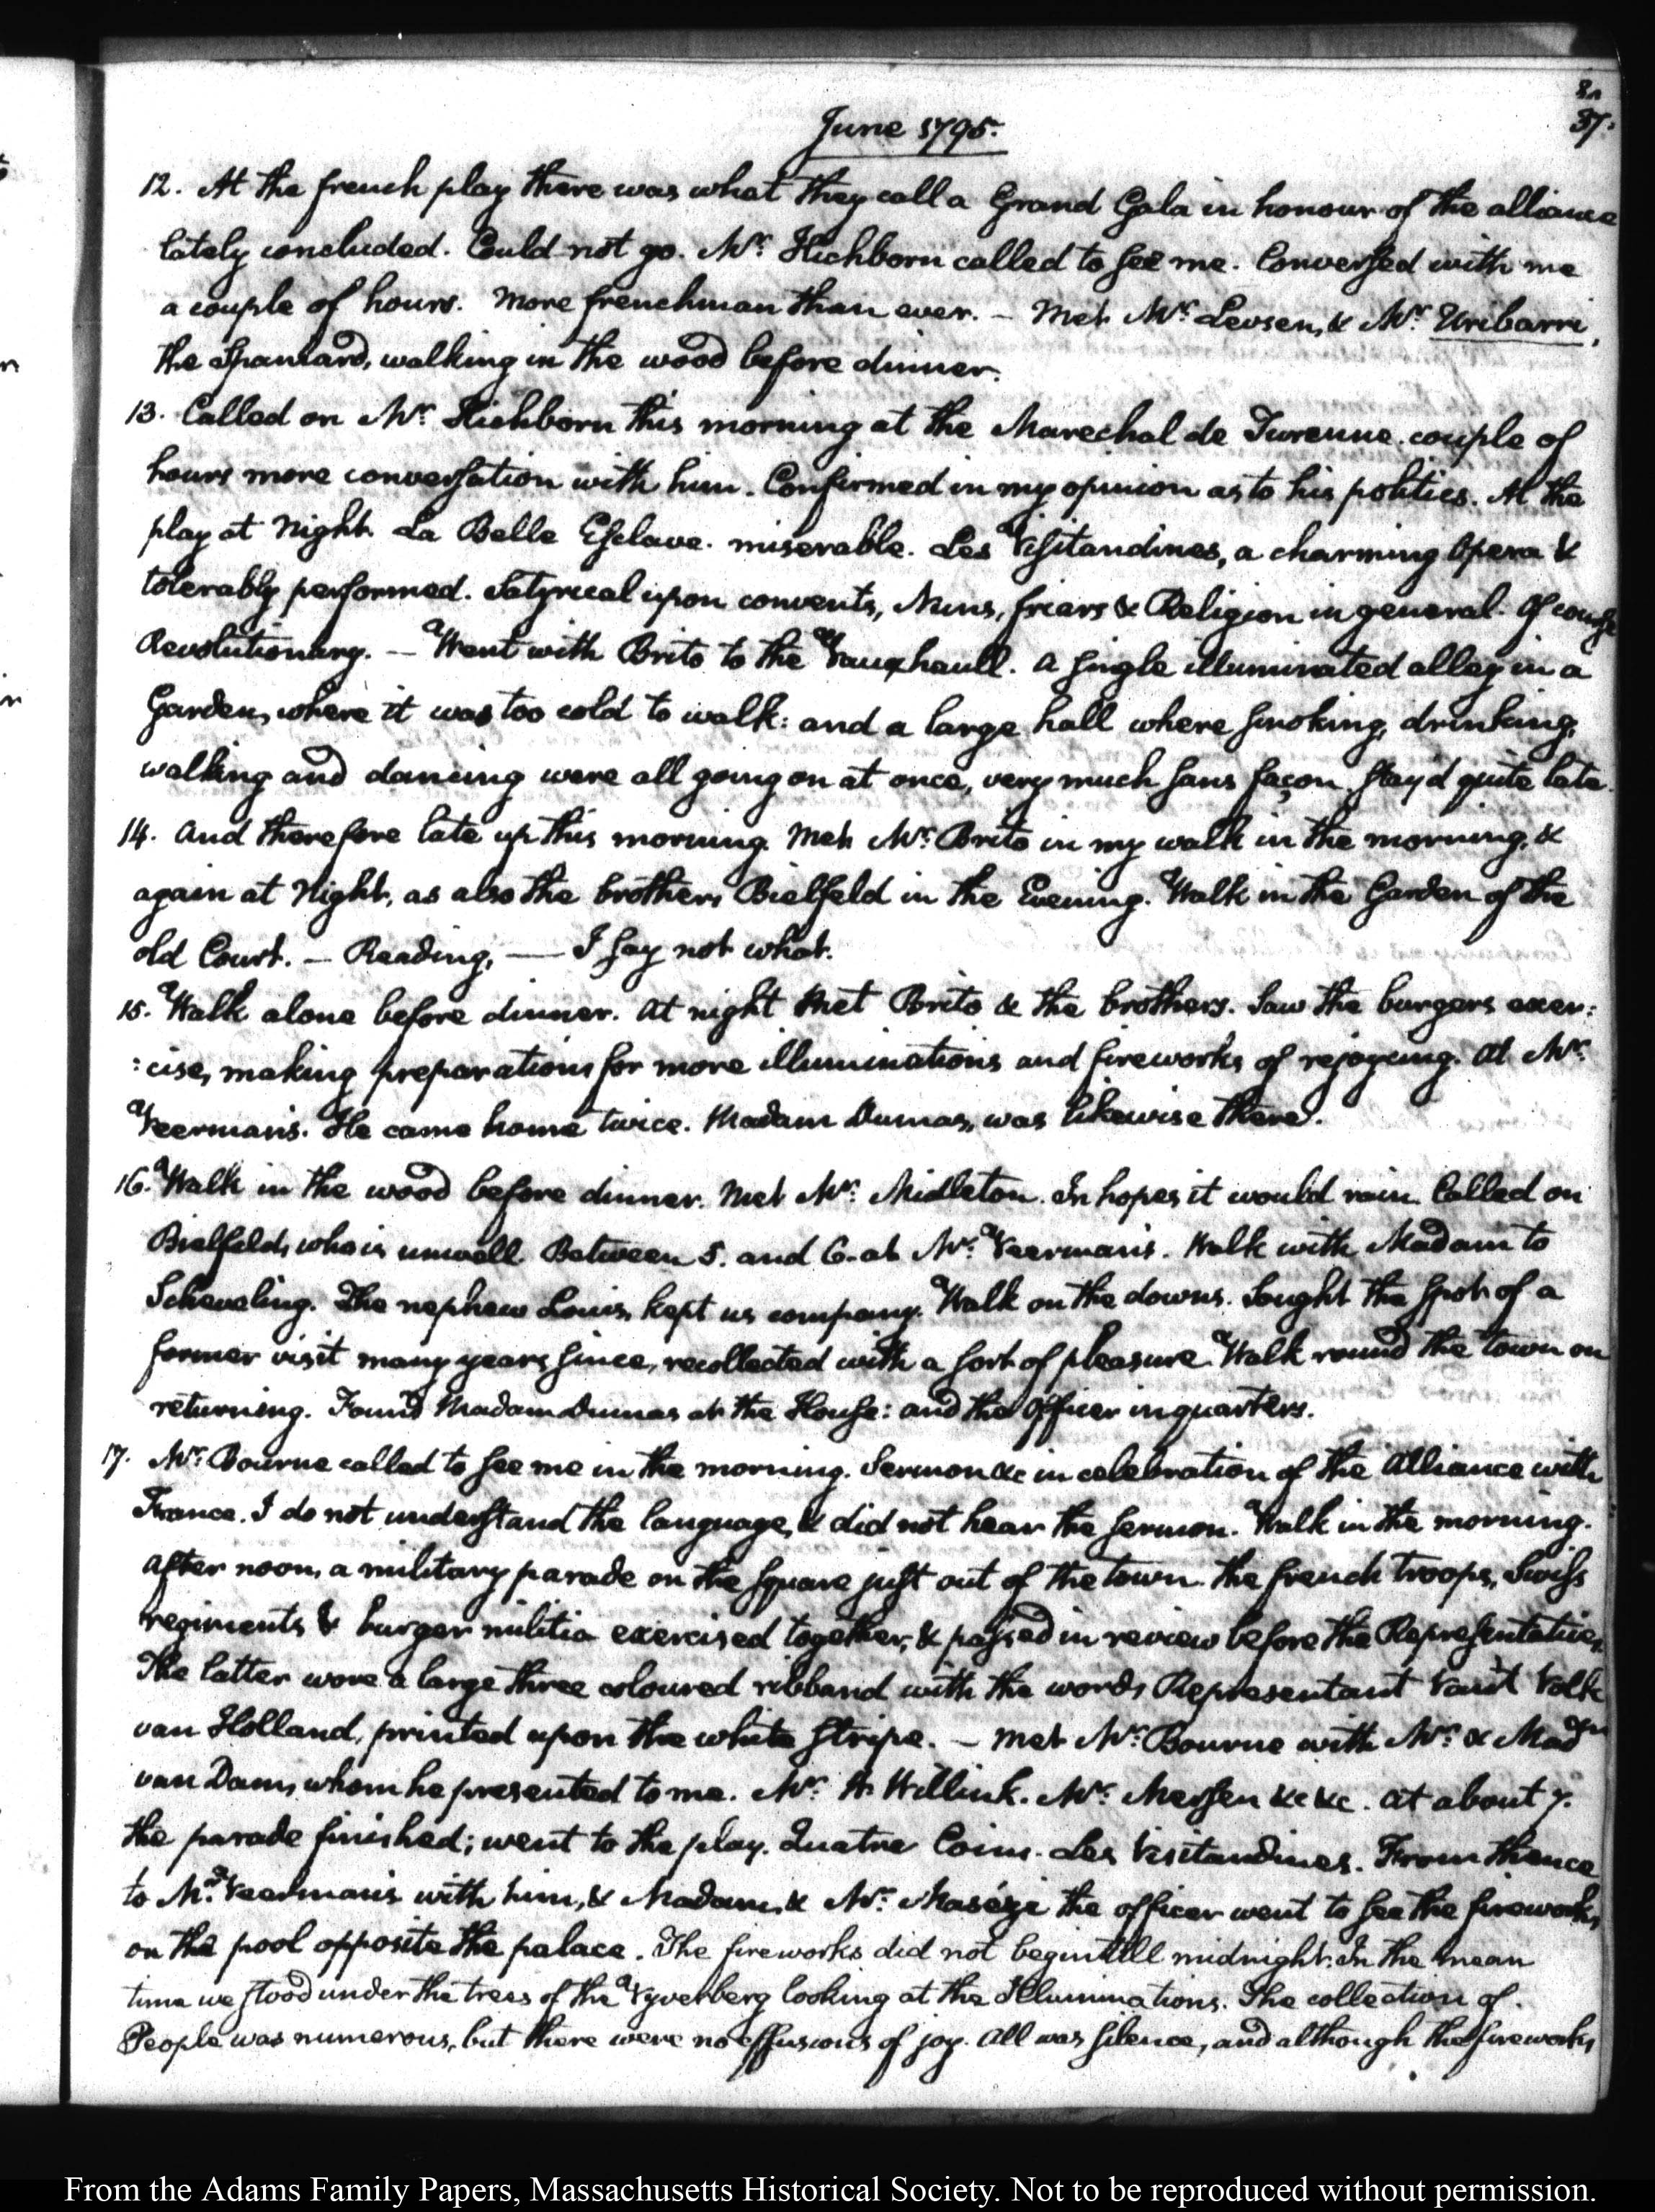 37.
June 1795.
12. At the french play there was what they call a Grand Gala in honour of the alliance
lately concluded. Could not go. Mr. Hichborn called to see me. Conversed with me
a couple of hours. More frenchman than ever. — Met Mr. Levsen, & Mr. Uribarri,
the Spaniard, walking in the wood before dinner.
13. Called on Mr. Hichborn this morning at the Marechal de Turenne. couple of
hours more conversation with him. Confirmed in my opinion as to his politics. At the
play at Night. La Belle Esclave. miserable. Les Visitandines, a charming Opera &
tolerably performed. Satyrical upon convents, Nuns, friars & Religion in general. Of course
Revolutionary. — Went with Brito to the Vauxhaull. A single illuminated alley in a
Garden, where it was too cold to walk: and a large hall where smoking, drinking,
walking and dancing were all going on at once, very much sans façon. Stay'd quite late.
14. And therefore late up this morning. Met Mr. Brito in my walk in the morning, &
again at Night, as also the brothers Bielfeld in the Evening. Walk in the Garden of the
old Court. — Reading, — I say not what.
15. Walk alone before dinner. At night met Brito & the brothers. Saw the burgers exer:
:cise, making preparations for more illuminations and fireworks of rejoycing. At Mr.
Veerman's. He came home twice. Madam Dumas, was likewise there.
16. Walk in the wood before dinner. Met Mr. Midleton. In hopes it would rain. Called on
Bielfeld, who is unwell. Between 5. and 6. at Mr. Veerman's. Walk with Madam to
Scheveling. The nephew Louis, kept us company. Walk on the downs. Sought the spot of a
former visit many years since, recollected with a sort of pleasure. Walk round the town on
returning. Found Madam Dumas at the House: and the Officer in quarters.
17. Mr. Bourne called to see me in the morning. Sermon &c in celebration of the Alliance with
France. I do not understand the language, & did not hear the sermon. Walk in the morning.
After noon, a military parade on the square just out of the town. The french troops, Swiss
regiments & burger militia exercised together, & passed in review before the Representatives.
The latter wore a large three coloured ribband with the words Representant van't Volk
van Holland, printed upon the white stripe. — Met Mr. Bourne with Mr. & Madm
van Dam, whom he presented to me. Mr. W. Willink. Mr. &c &c. At about 7.
the parade finished; went to the play. Quatre Coins. Les Visitandines. From thence
to Mr. Veerman's with him, & Madam, & Mr. Maséze the officer went to see the fireworks,
on the pool opposite the palace. The fireworks did not begin till midnight. In the mean
time we stood under the trees of the Vyverberg looking at the Illuminations. The collection of
People was numerous, but there were no effusions of joy. All was silence, and although the fireworks
From the Adams Family Papers, Massachusetts Historical Society. Not to be reproduced without permission.